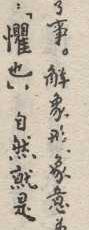 了事。解象形、象意
:「懼也」，自然就是